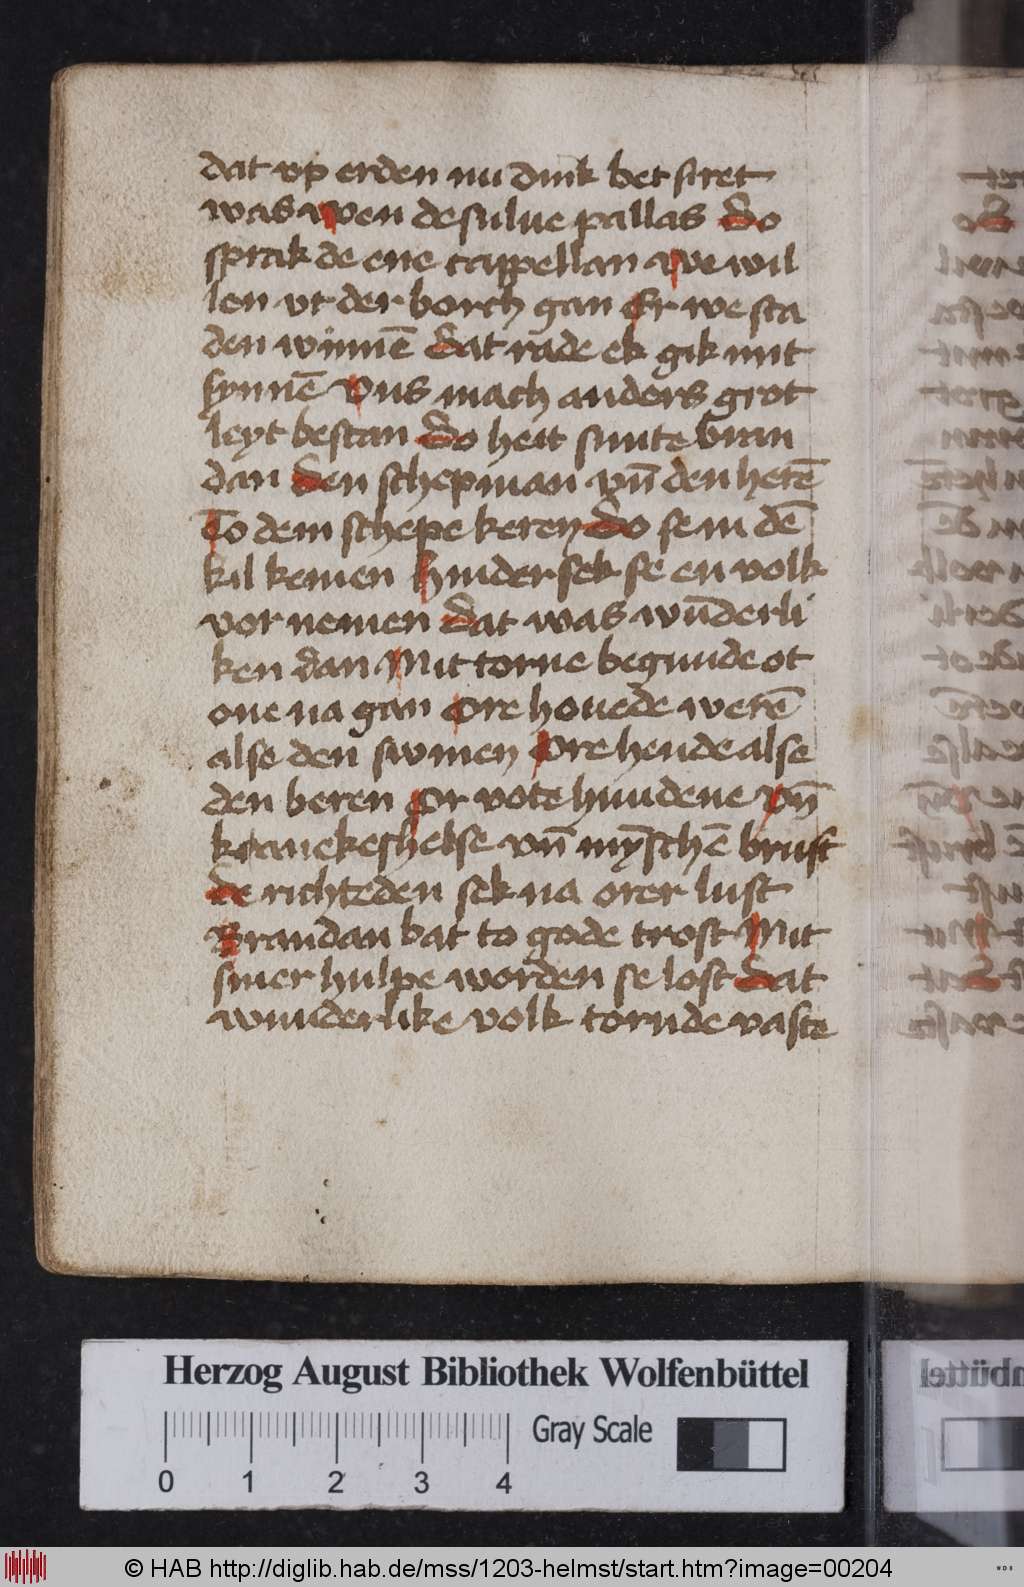 dat vp erden nu dink bet siret
was wen de sulue pallas Do
sprak de ene cappellan We wil
len vt der borch gan Er we sta
den wynnē Dat rade ek gik mit
synnē Vns mach anders grot
leyt bestan Do heit sunte bran
dan Den schepman vn̄ den herē
To dem schepe keren Do se in dē
kil kemen Hinder sek se en volk
vor nemen Dat was wūderli
ken dan Mit torne begunde ot
one na gan Ore houede werē
alse den swinen Ore hende alse
den beren Or vote hundene Vn̄
kranekeshelse vn̄ mȳschē brust
De richteden sek na orer lust
Brandan bat to gode trost Mit
siner hulpe worden se lost Dat
wunderlike volk tornde vaste
Herzog August Bibliothek Wolfenbüttel
Gray Scale
0 1 2 3 4
© HAB http://diglib.hab.de/mss/1203-helmst/start.htm?image=00204